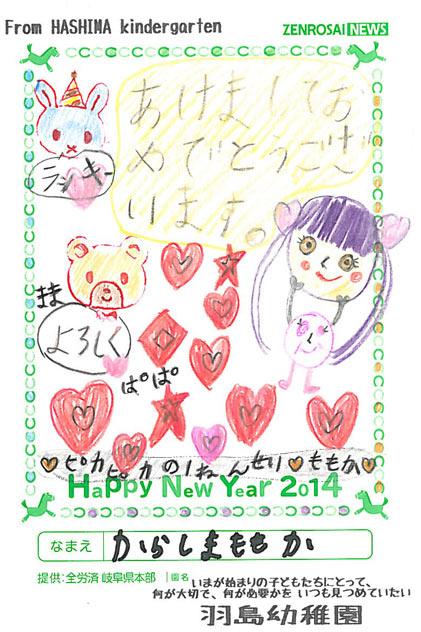 From HASHIMA kindergarten
ZENROSAI NEWS
あけましてお
めでとうござ
います。
ラッキー
まま
よろしく
ぱぱ
ピカピカの1ねんせい ももか
Happy New Year 2014
なまえ からしまももか
提供:全労済 岐阜県本部
匿名
いまが始まりの子どもたちにとって、
何が大切で、何が必要かを いつも見つめていたい
羽島幼稚園